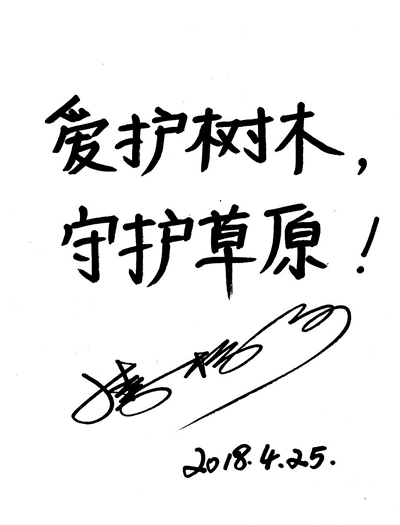 爱护树木,
守护草原!
2018.4.25.